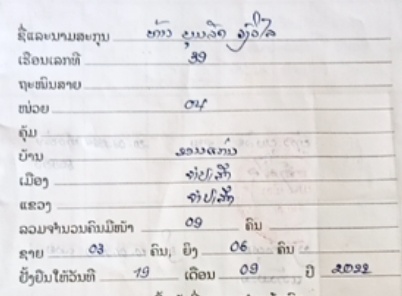 ຊື່ແລະນາມສະກຸນ ທ້າວ ບຸນລັດ
ເຮືອນເລກທີ 39
ຖະໜົນສາຍ
ໜ່ວຍ 04
ຄຸ້ມ
ບ້ານ
ເມືອງ ຈຳປາສັກ
ແຂວງ ຈຳປາສັກ
ລວມຈຳນວນຄົນມີໜ້າ 09 ຄົນ
ຊາຍ 03 ຄົນ, ຍິງ 06 ຄົນ
ຢັ້ງຢືນໃຫ້ວັນທີ 19 ເດືອນ 09 ປີ 2022